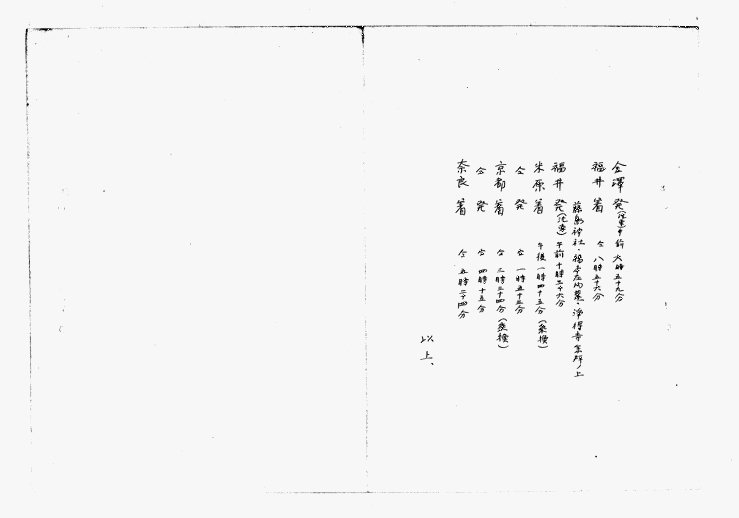 金澤発(汽車)午前六時五十九分
福井着 仝 八時五十六分
藤島神社、福 左内墓、浄得寺参拝ノ上
福井発(汽車)午前十時三十六分
米原着 午後一時四十五分(乗換)
仝 発 仝 一時五十三分
京都着 仝 三時三十四分(乗換)
仝 発 仝 四時十五分
奈良着 仝 五時二十四分
以上、